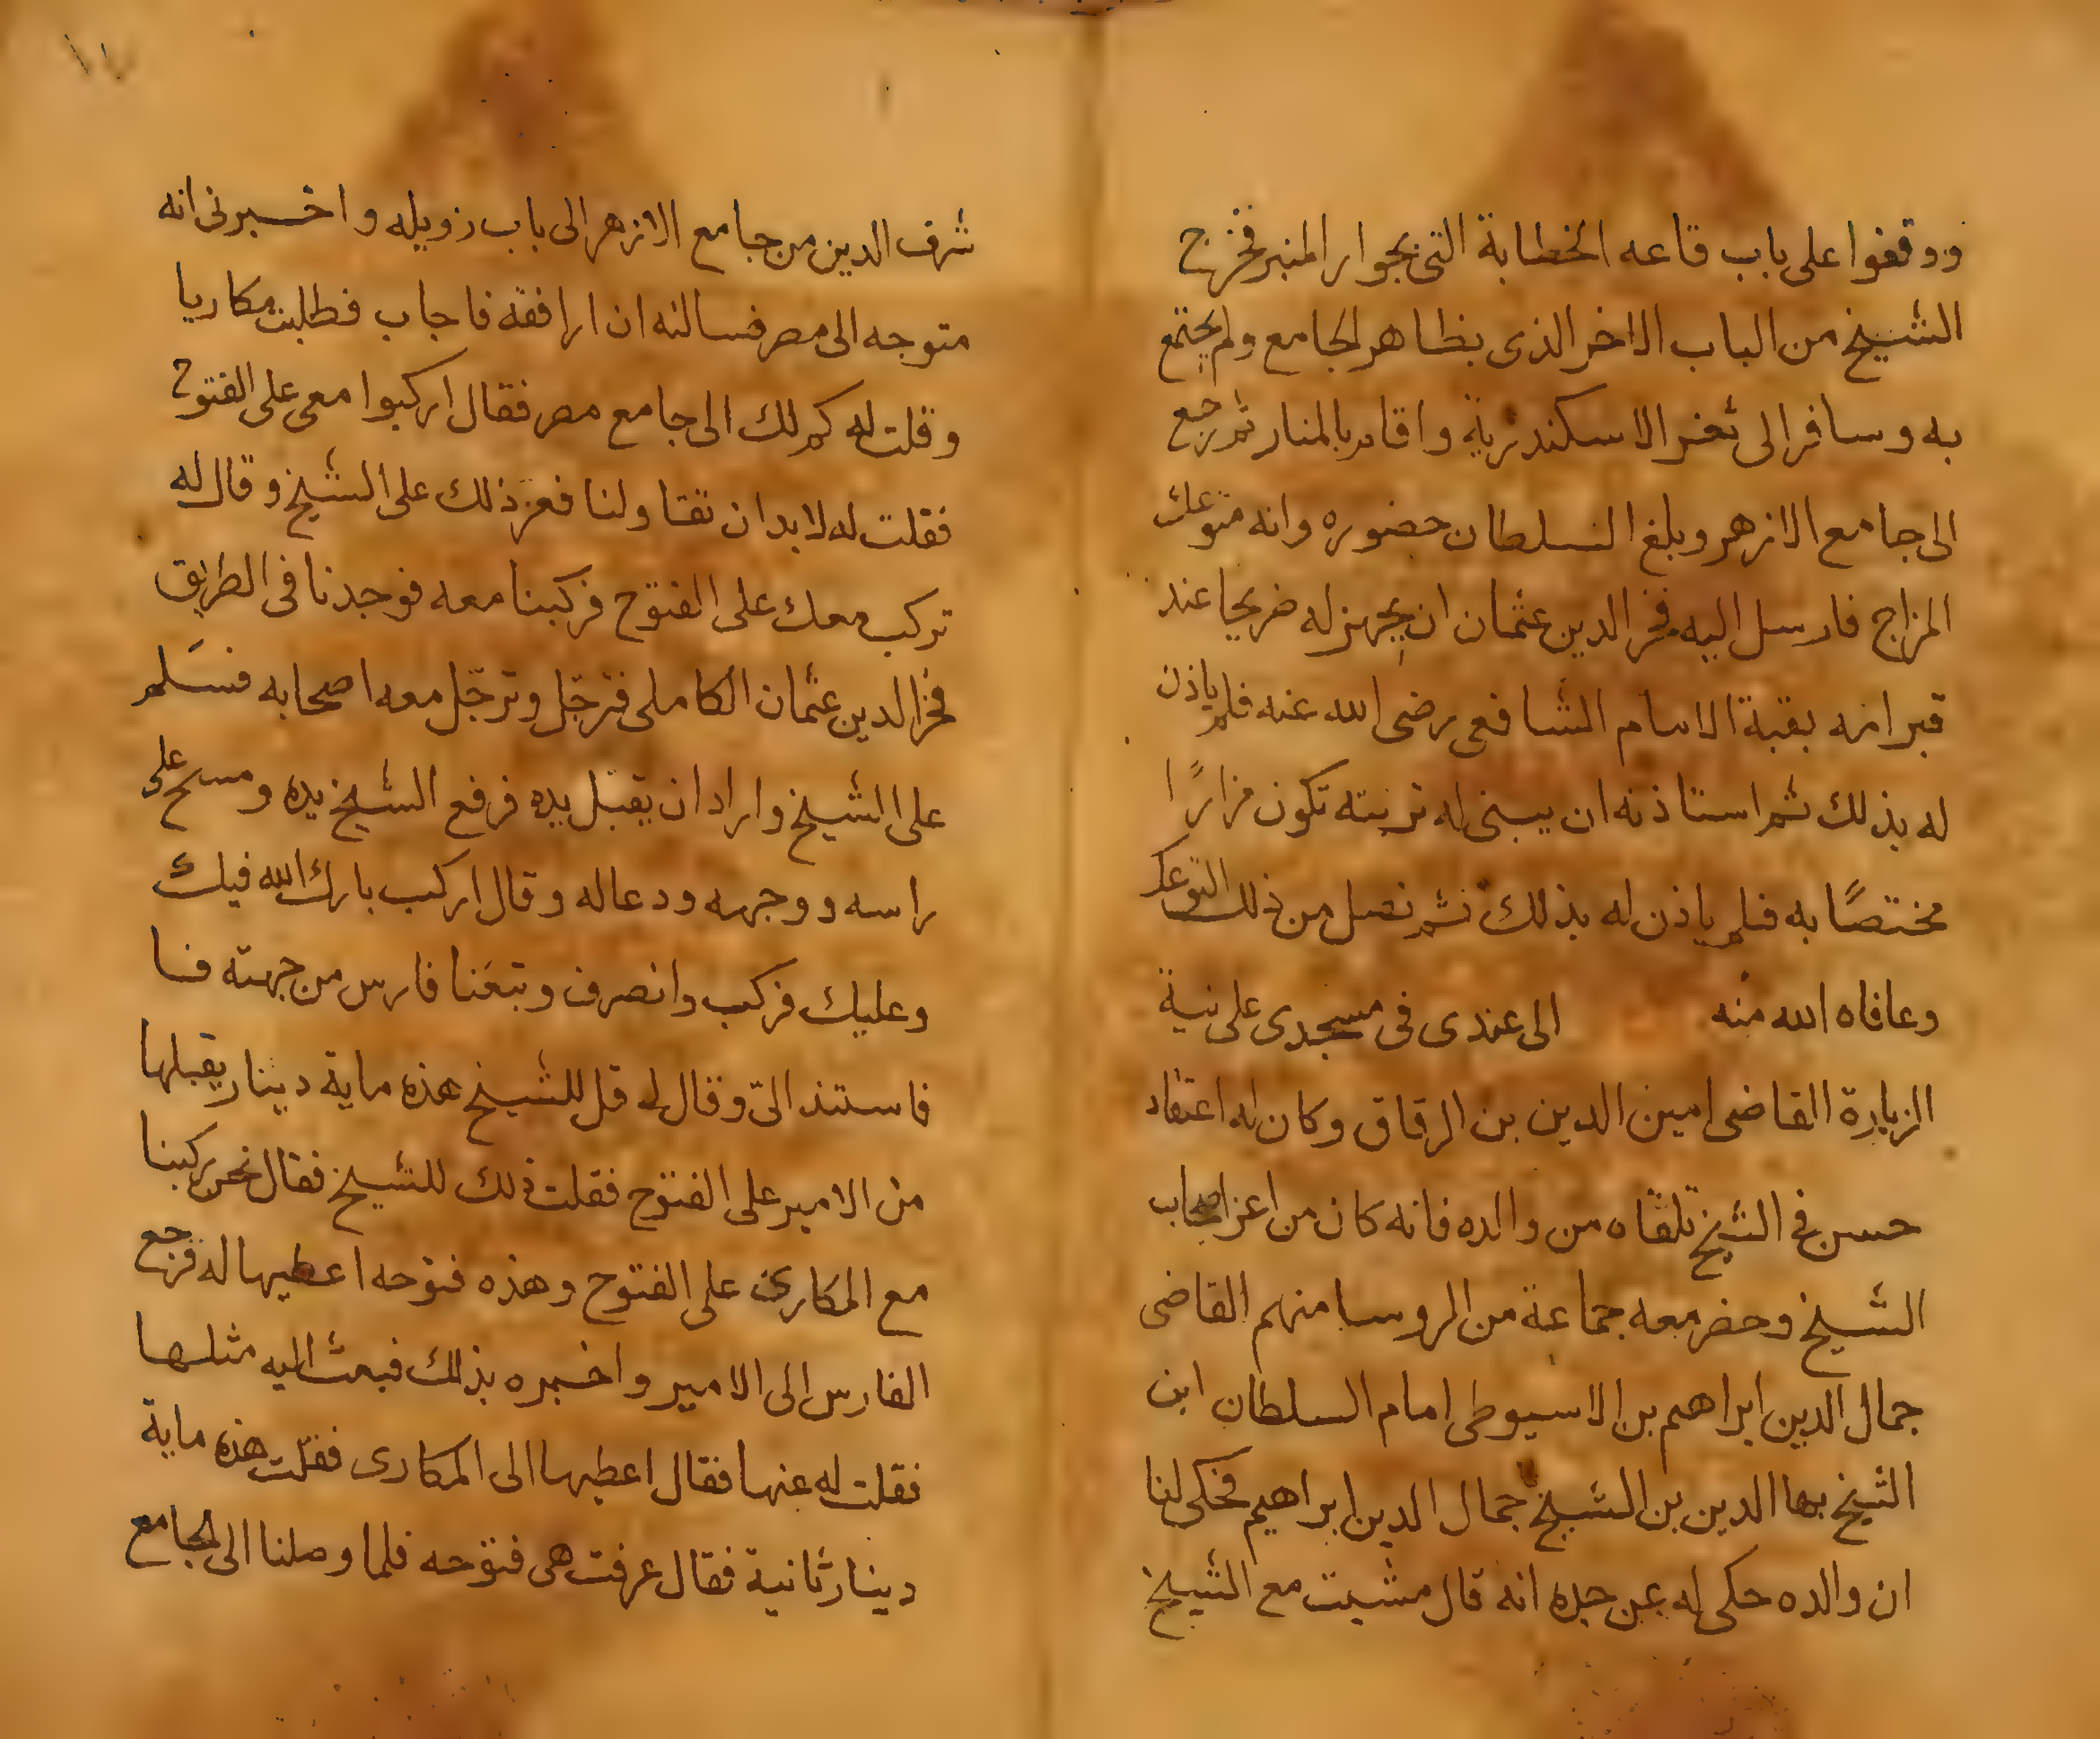 ووقفوا على باب قاعه الخطابة التى بجوار المنبر فخرج
الشيخ من الباب الاخر الذى بظاهر الجامع ولم يجتمع
به وسافر الى ثغر الاسكندرية واقام بالمنار ثم رجع
الى جامع الازهر وبلغ السلطان حضوره وانه متوعك
المزاج فارسل اليه فخر الدين عثمان ان يجهز له ضريحا عند
قبر امه بقبة الامام الشافعى رضى الله عنه فلم ياذن
له بذلك ثم استاذنه ان يبنى له تربته تكون مزارًا
مختصًا به فلم ياذن له بذلك ثم نصل من ذلك التوعك
وعافاه الله منه الى عندى فى مسجدى على نية
الزيارة القاضى امين الدين بن الرقاق وكان له اعتقاد
حسن فى الشيخ تلقاه من والده فانه كان من اعز اصحاب
الشيخ وحضر معه جماعة من الروسا منهم القاضى
جمال الدين ابراهيم بن الاسيوطى امام السلطان ابن
الشيخ بها الدين بن الشيخ جمال الدين ابراهيم فحكى لنا
ان والده حكى له عن جده انه قال مشيت مع الشيخ
شرف الدين من جامع الازهر الى باب زويله واخبرنى انه
متوجه الى مصر فسالته ان ارافقه فاجاب فطلبت مكاريا
وقلت له كم لك الى جامع مصر فقال اركبوا معى على الفتوح
فقلت له لا بد ان تقاولنا فعز ذلك على الشيخ وقال له
نركب معك على الفتوح فركبنا معه فوجدنا فى الطريق
فخر الدين عثمان الكاملى فترجّل وترجّل معه اصحابه فسَلم
على الشيخ واراد ان يقبل يده فرفع الشيخ يده ومسح على
راسه ووجهه ودعا له وقال اركب بارك الله فيك
وعليك فركب وانصرف وتبعَنا فارس من جهته فسا
فاستند الىّ وقال له قل للشيخ هذه ماية دينار يقبلها
من الامير على الفتوح فقلت ذلك للشيخ فقال نحن ركبنا
مع المكارى على الفتوح وهذه فتوحه اعطيها له فرجع
الفارس الى الامير واخبره بذلك فبعث اليه مثلها
فقلت له عنها فقال اعطيها الى المكارى فقلت هذه ماية
دينار ثانية فقال عرفت هى فتوحه فلما وصلنا الى الجامع